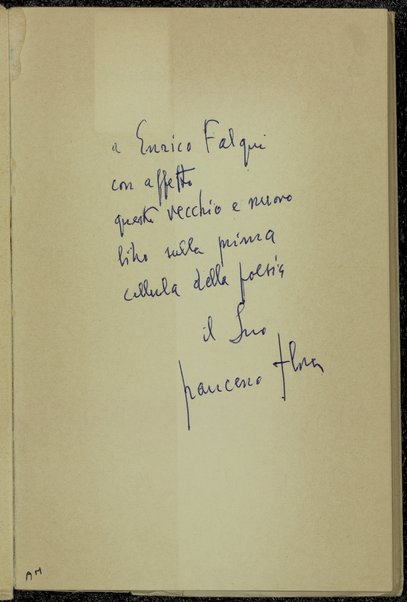 a Enrico Falqui
con affetto
questo vecchio e nuovo
libro sulla prima
cellula della poesia
il Suo
Francesco Flora
AM